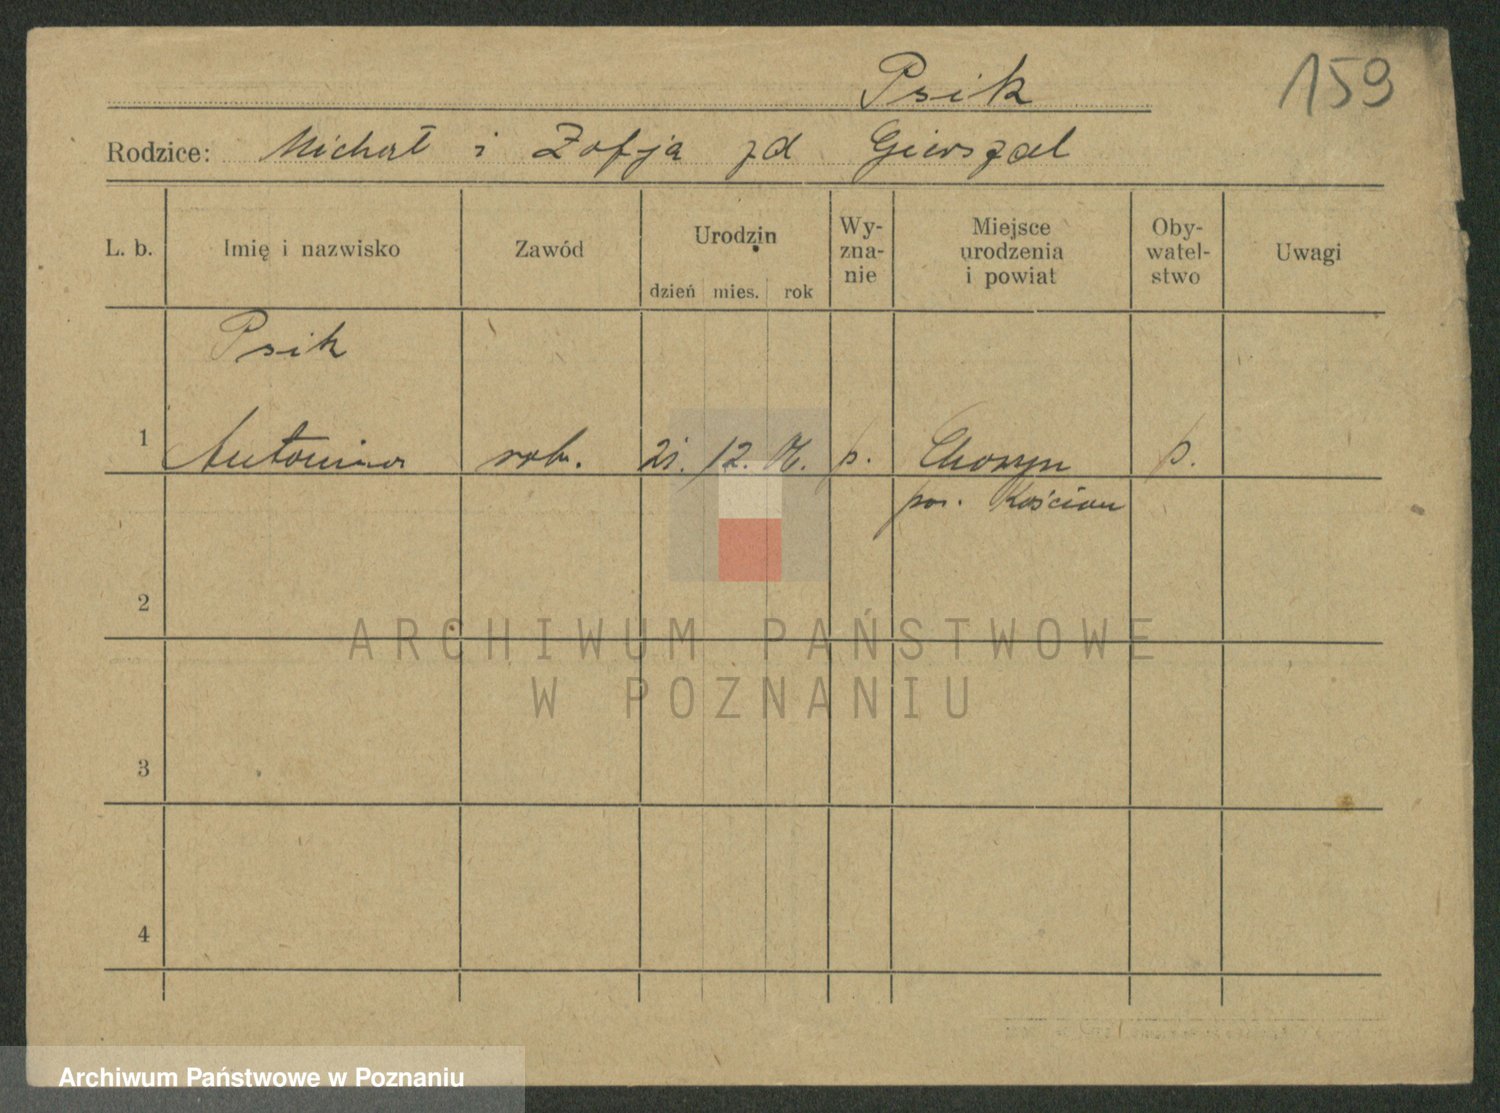 Psik 159
Rodzice: Michał i Zofja zd Gierszal
L. b. Imię i nazwisko Zawód Urodzin Wy-znanie Miejsce urodzenia i powiat Oby-watel-stwo Uwagi
dzień mies. rok
Psik
1 Antonina rob. 21. 12. 06. p. Choryn p.
pow. Kościan
2
ARCHIWUM PAŃSTWOWE
W POZNANIU
3
4
Archiwum Państwowe w Poznaniu